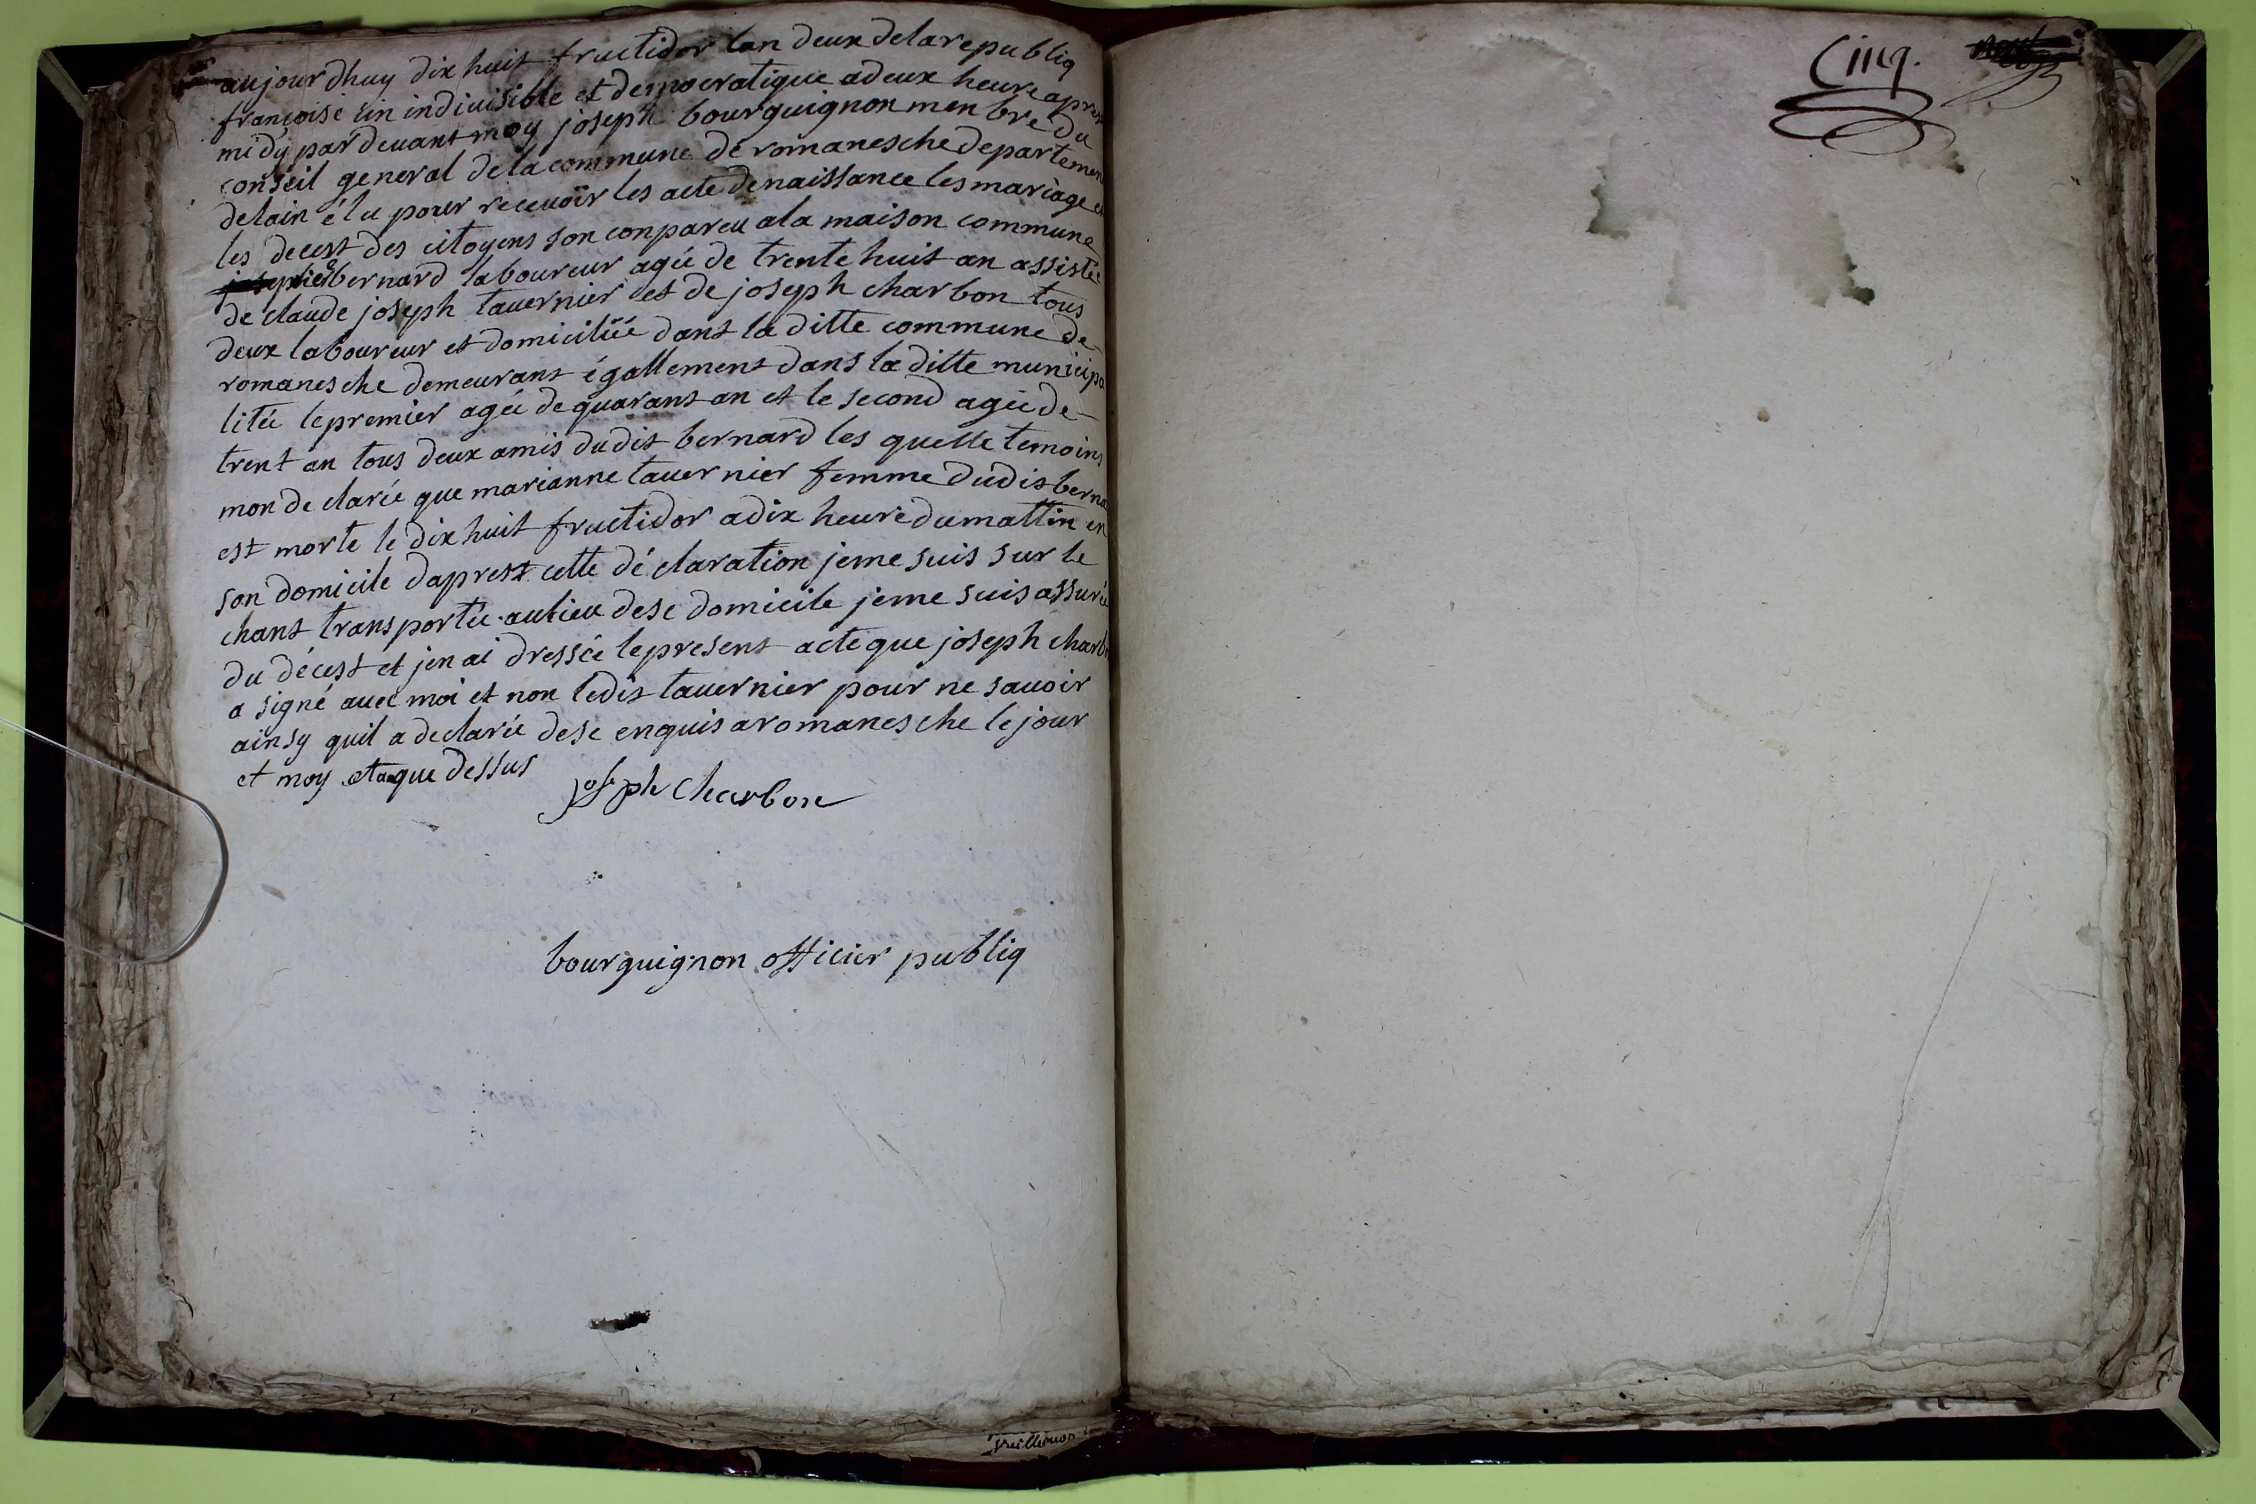 aujourdhuy dix huit fructidor lan deux delarepubliq
françoise un indiuisible et democratique adeux heure apres
midy pardeuant moy joseph bourguignon menbre du
conseil general delacommune de romanesche departement
delain élu pour receuoir les acte denaissance lesmariage et
les decest des citoyens son conpareu ala maison commune
bernard laboureur agée de trente huit an assistée
de claude joseph tauernier et de joseph charbon tous
deux laboureur et domiciliée dans la ditte commune de
romanesche demeurant égallement dans la ditte municipa
litée lepremier agée dequarant an et le second agée de
trent an tous deux amis dudit bernard les quelle temoins
mon declarée que marianne tauernier femme dudit berna
est morte le dix huit fructidor adix heure dumattin en
son domicile daprest cette déclaration jeme suis sur le
chant transportée aulieu dese domicile jeme suis assurée
du décest et jenai dressée lepresent acte que joseph charb
a signé auec moi et non ledit tauernier pour ne sauoir
ainsy quil a declarée dese enquis aromanesche lejour
et moy et que dessus
joseph Charbon
bourguignon officier publiq
Cinq.